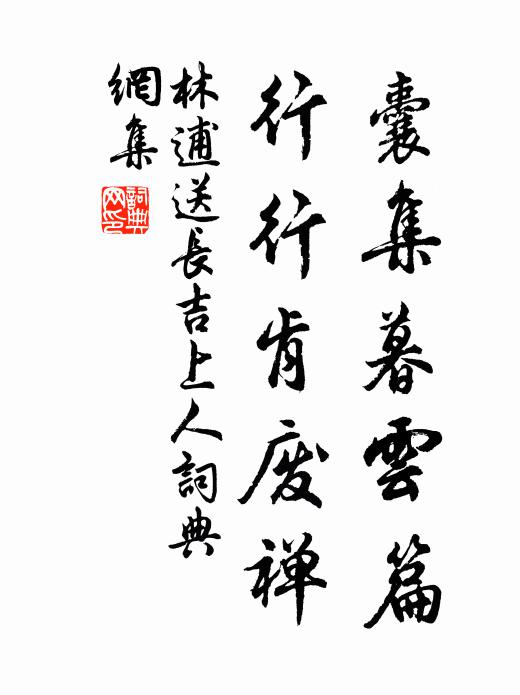 囊集暮雲篇
行行肯廢禅
林逋送長吉上人詞典
網集
詞典
网印